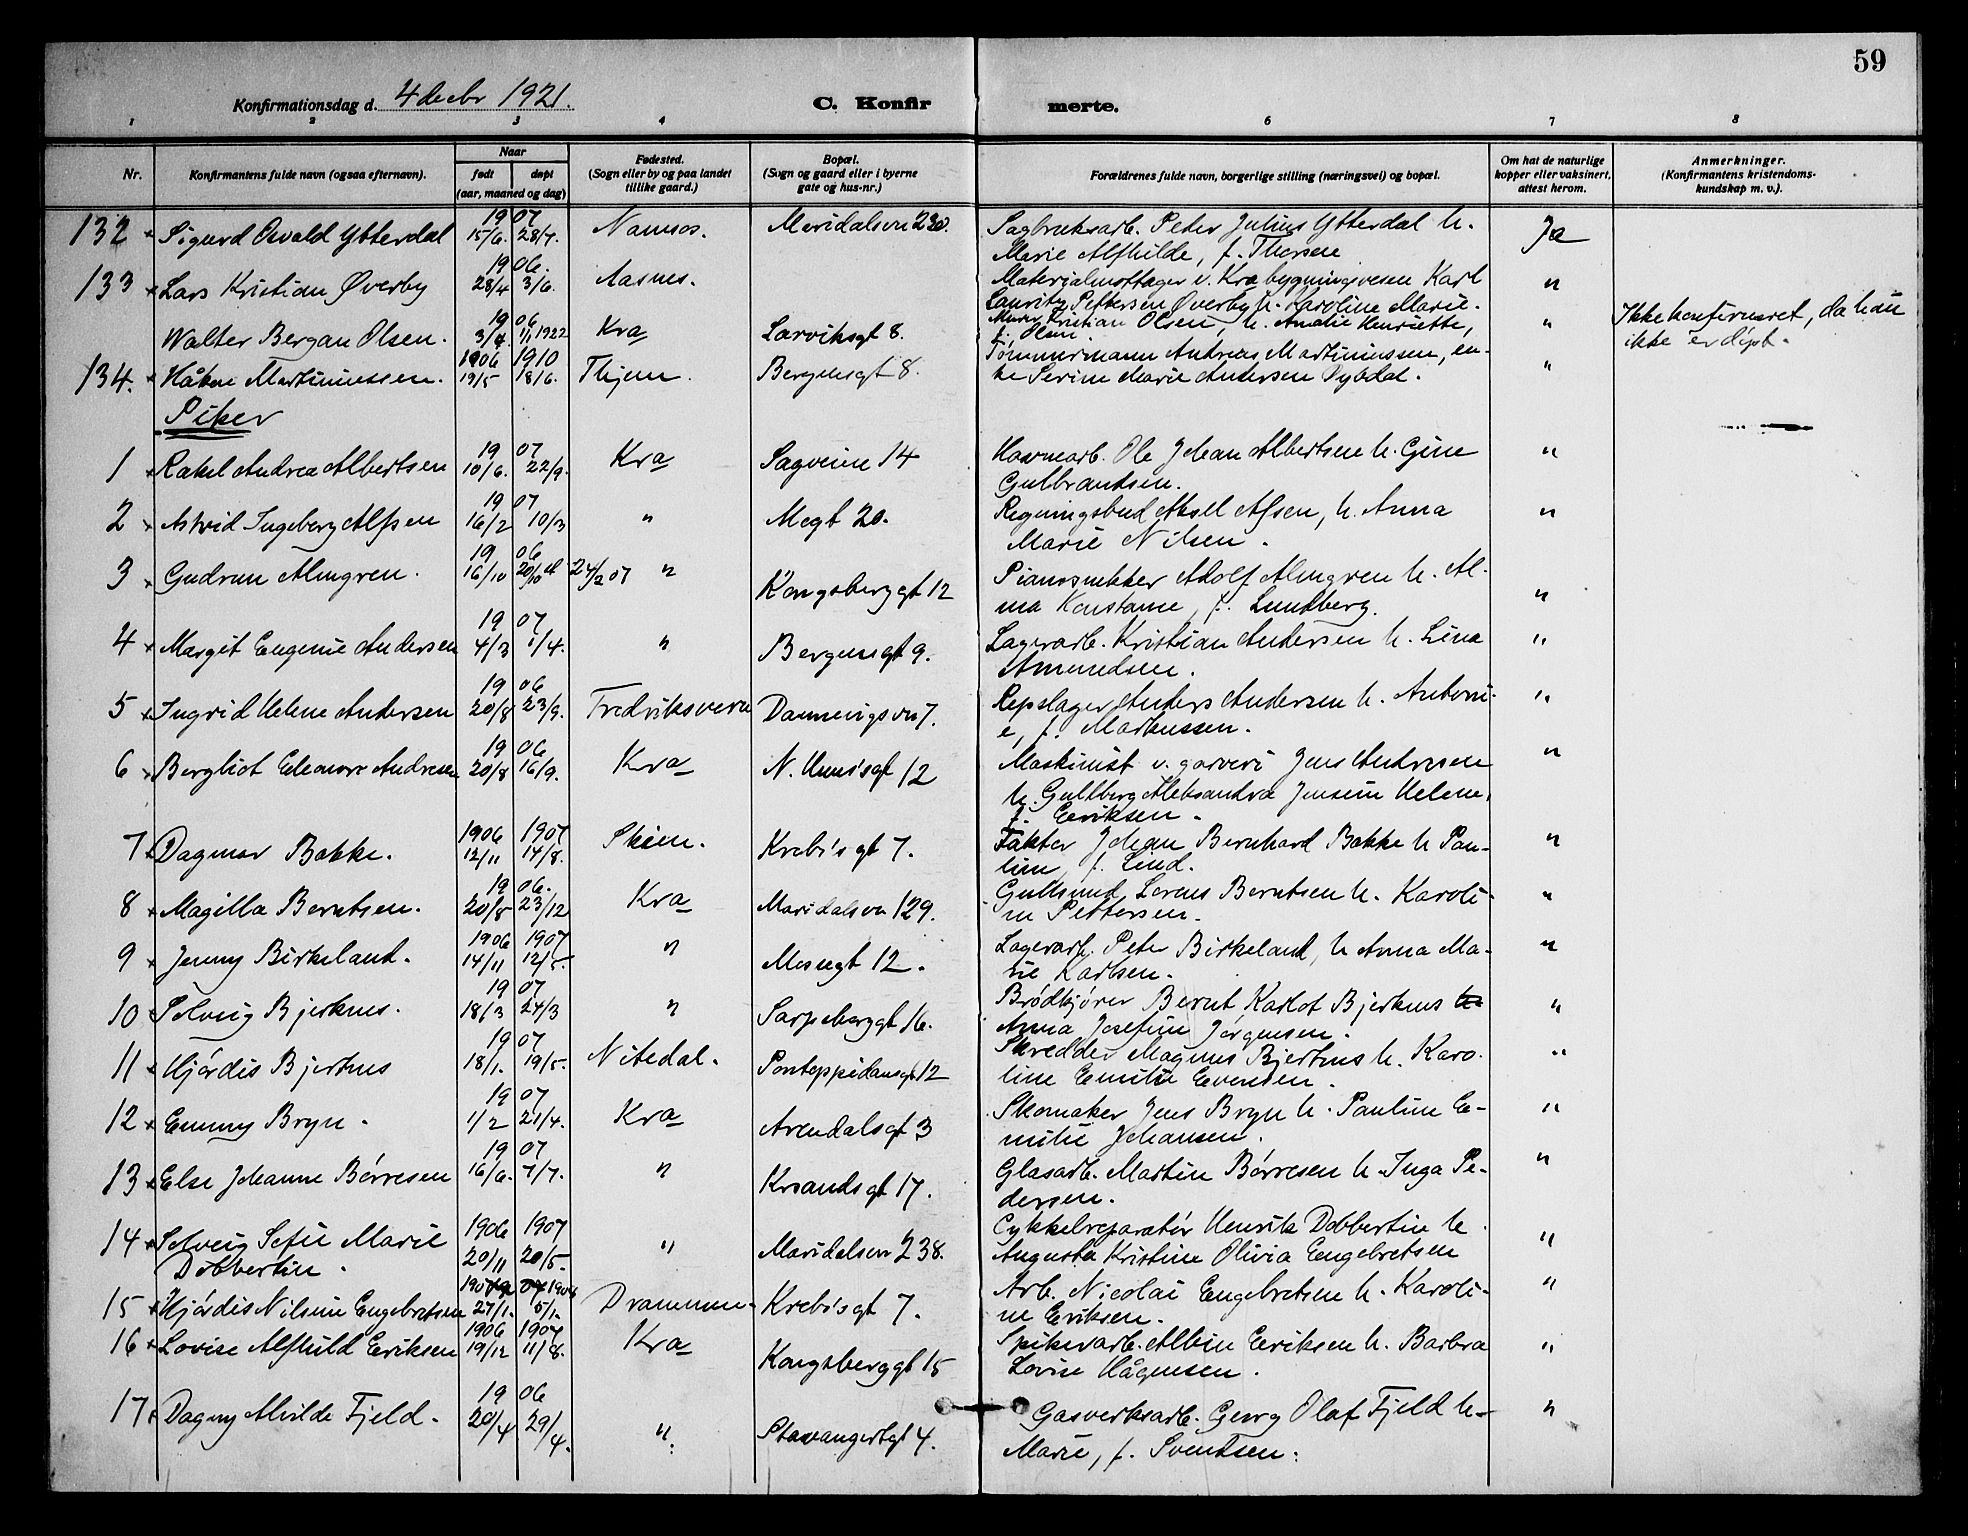 59
Konfirmationsdag d. 4 decbr 1921. C. Konfir merte.
1 2 3 4 6 7 8
Nr. Konfirmantens fulde navn (ogsaa efternavn). Naar født døpt (aar, maaned og dag) Fødested. (Sogn eller by og paa landet tillike gaard.) Bopæl. (Sogn og gaard eller i byerne gate og hus-nr.) Forældrenes fulde navn, borgerlige stilling (næringsvei) og bopæl. Om hat de naturlige kopper eller vaksinert, attest herom. Anmerkninger. (Konfirmantens kristendomskundskap m. v.).
132 Sigurd Osvald Ytterdal 19 07 15/6. 28/7. Namsos. Maridalsvn 230. Sagbruksarb. Peter Julius Ytterdal h. Ja
Marie Alfhilde, f. Thorsen
133 Lars Kristian Øverby 19 06. 28/4 3/6. Aasnes. Materialmottager v. Kra bygningsvesen Karl "
Lauritz Pettersen Øverby h. Karoline Marie.
Walter Bergan Olsen. 19 06 3/4. 1/1 1922 Kra Larviksgt 8. Murer Kristian Olsen, h. Amalie Henriette, " Ikke konfirmeret, da han
f. Olsen ikke er døpt.
134. Håkon Martiniussen. 1906 1910 19/5 18/6. Bergensgt 8. Tømmermann Andreas Martiniussen, en- "
ke Serine Marie Andersen Dybdal.
Piker
1 Rakel Andrea Albertsen 19 07 10/6. 22/9. Kra Sagveien 14 Havnearb. Ole Johan Albertsen h. Gine "
Gulbrandsen.
2 Astrid Ingeborg Alfsen 19 07 16/2 10/3 " Mogt 20. Regningsbud Aksel Alfsen, h. Anna "
Marie Nilsen.
3 Gudrun Almgren. 19 06 16/10 24/2 07 " Kongsberggt 12 Pianosnekker Adolf Almgren h. Al- "
ma Konstanse, f. Lundberg.
4 Margit Eugenie Andersen 19 07 4/3 1/4. " Bergensgt 9. Lagerarb. Kristian Andersen h. Lina "
Amundsen.
5 Ingrid Helene Andersen 19 06 20/8 23/9. Fredriksvern Dannevigsvn 7. Repslager Anders Andersen h. Antoni- "
e, f. Markussen.
6 Bergliot Eleonore Andresen 19 06 20/8 16/9. Kra N. Huus's gt 12 Maskinist v. garveri Jens Andresen "
h. Gullborg Aleksandra Jensine Helene,
f. Eriksen.
7 Dagmar Bakke. 1906 1907 12/11 14/8. Skien. Krebs's gt 7. Faktor Johan Bernhard Bakke h Pau- "
line, f. Lind.
8 Magilla Berntsen. 19 06. 20/8 23/12 Kra Maridalsvn 129. Gullsmed Lorens Berntsen h. Karoli- "
ne Pettersen.
9 Jenny Birkeland. 1906 1907 14/11 12/5. " Mosgt 12. Lagerarb. Peter Birkeland, h Anna Ma- "
rie Karlsen.
10 Solveig Bjerknes. 19 07 18/3 24/3 " Sarpsborggt 16. Brødkjører Bernt Karlot Bjerknes h "
Anna Josefine Jørgensen.
11 Hjørdis Bjerknes 19 07 18/1. 19/5. Nitedal. Pontoppidansgt 12 Skredder Magnus Bjerknes h. Karo- "
line Emilie Evensen.
12 Emmy Bryn. 19 07 1/2 21/4. Kra Arendalsgt 3 Skomaker Jens Bryn h. Pauline E- "
milie Johansen.
13 Else Johanne Børresen 19 07 16/6. 7/7. " Krsandsgt 17. Glasarb. Martin Børresen h. Inga Pe- "
dersen.
14 Solveig Sofie Marie 1906 1907 20/11 20/5. " Maridalsvn 238. Cykkelreparatør Henrik Dobbertin h. "
Dobbertin. Augusta Kristine Olivia Engebretsen
15 Hjørdis Nilsine Engebretsen 27/1. 5/1. Drammen. Krebs's gt 7. Arb. Nicolai Engebretsen h. Karoli- "
ne Eriksen.
16 Lovise Alfhild Eriksen 1906 1907 19/12 11/8. Kra Kongsberggt 15 Spikerarb. Albin Eriksen h. Barbra "
Lovise Hågensen.
17 Dagny Alvilde Fjeld. 19 06 20/4 29/4. " Stavangergt 4. Gasverksarb. Georg Olaf Fjeld h. "
Marie, f. Svendsen.